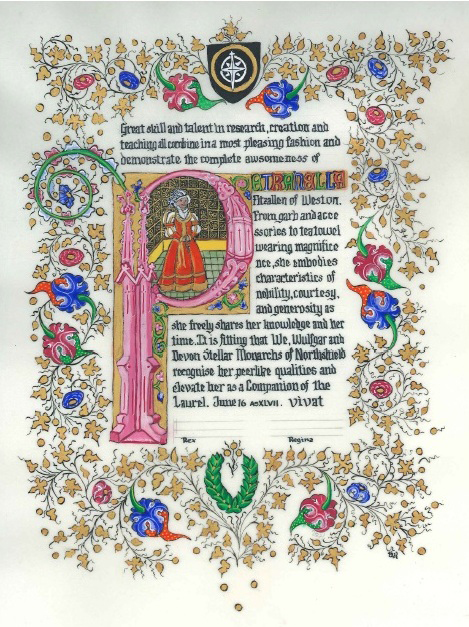 Great skill and talent in research, creation and
teaching all combine in a most pleasing fashion and
demonstrate the complete awsomeness of
PETRONELLA
Fitzallen of Weston.
From garb and acce
ssories to tea towel
wearing magnifice
nce, she embodies
characteristics of
nobility, courtesy,
and generosity as
she freely shares her knowledge and her
time. It is fitting that We, Wulfgar and
Devon Stellar Monarchs of Northshield
recognise her peerlike qualities and
elevate her as a Companion of the
Laurel. June 16 AS XLVII. Vivat
Rex Regina